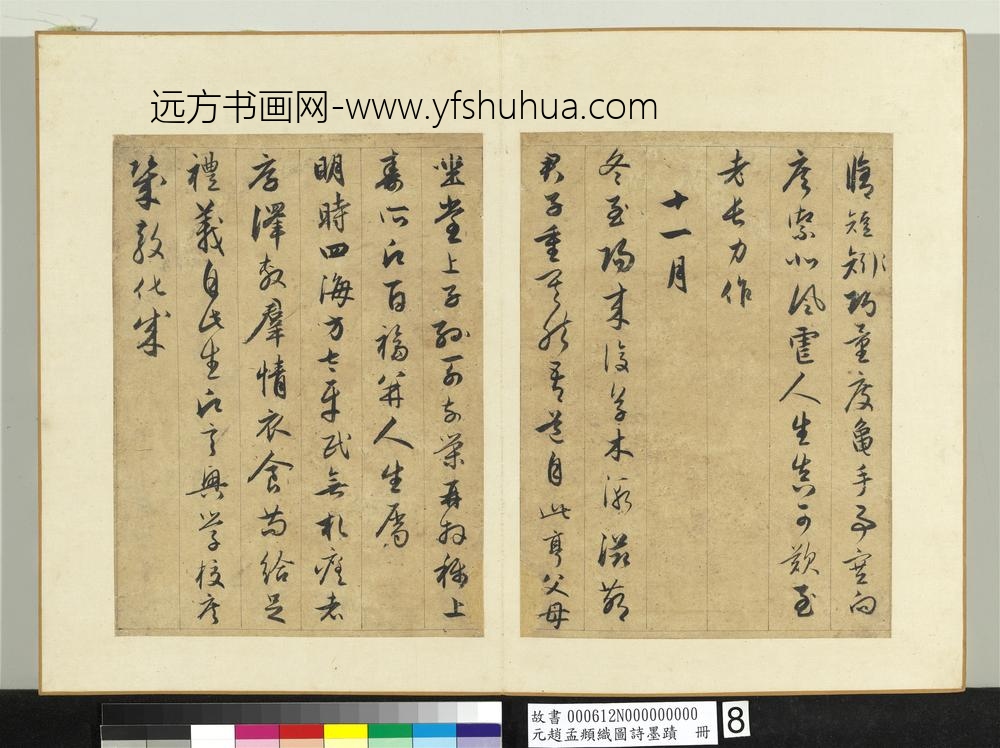 远方书画网-www.yfshuhua.com
脩短巧量度龜手事塞向
庶禦北風虐人生真可歎至
老長力作
十一月
冬至陽來復草木漸滋萌
君子重其然吾道自此亨父母
坐堂上子孫列前榮再拜稱上
壽所願百福并人生屬
明時四海方太平民無札瘥者
厚澤敷羣情衣食苟給足
禮義自此生願言興學校庶
幾教化成
故書 000612N000000000
元趙孟頫織圖詩墨蹟 冊
8